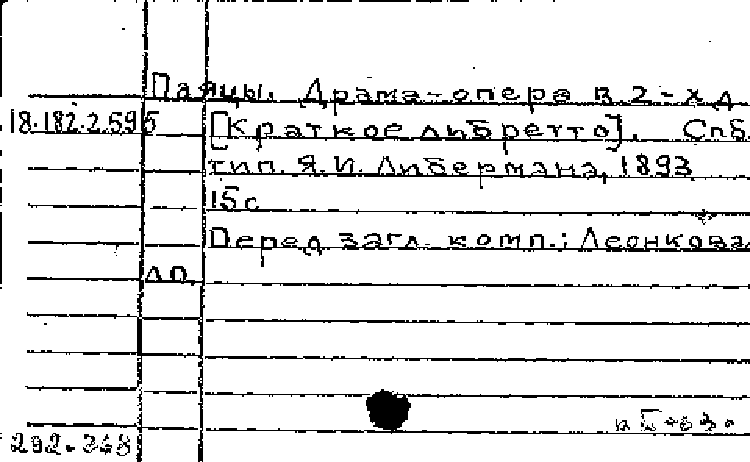 Паяцы. Драма-опера в 2-х д
18.182.2.59б [Краткое либретто]. Спб.
тип. Я.И. Либермана, 1893
15с
Перед загл. комп.: Леонкова
лп.
292.348